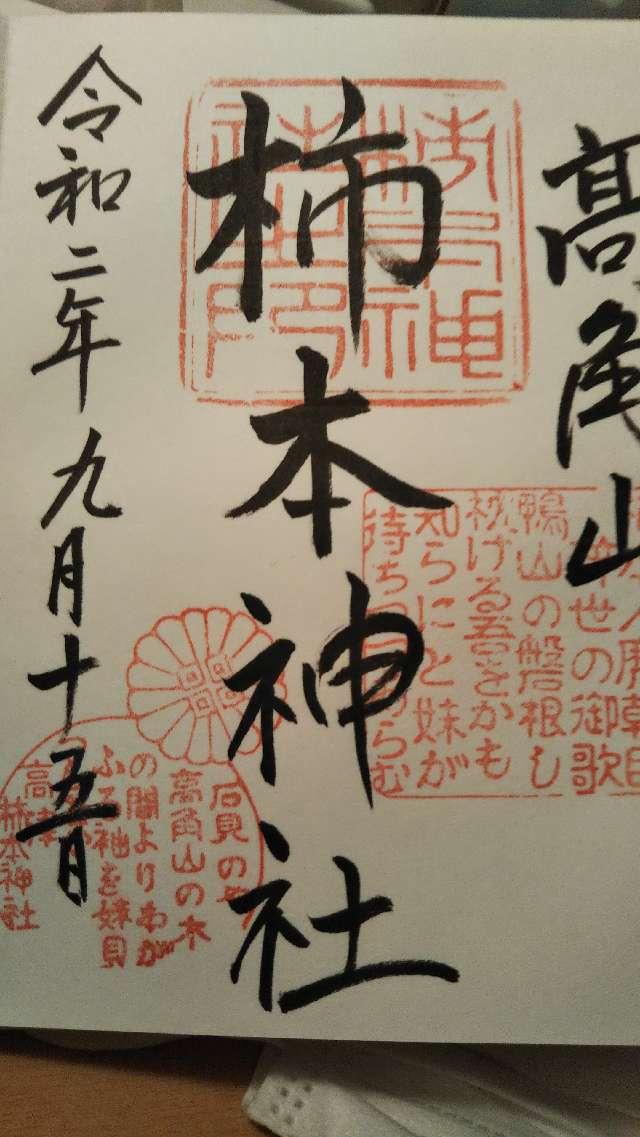 高角山
柿本神社
令和二年九月十五日
世の御歌
鴨山の磐根し
枕ける吾をかも
知らにと妹が
待ちつつあらむ
石見の や
高角山の木
の間よりわが
ふる袖を妹見
高津
柿本神社